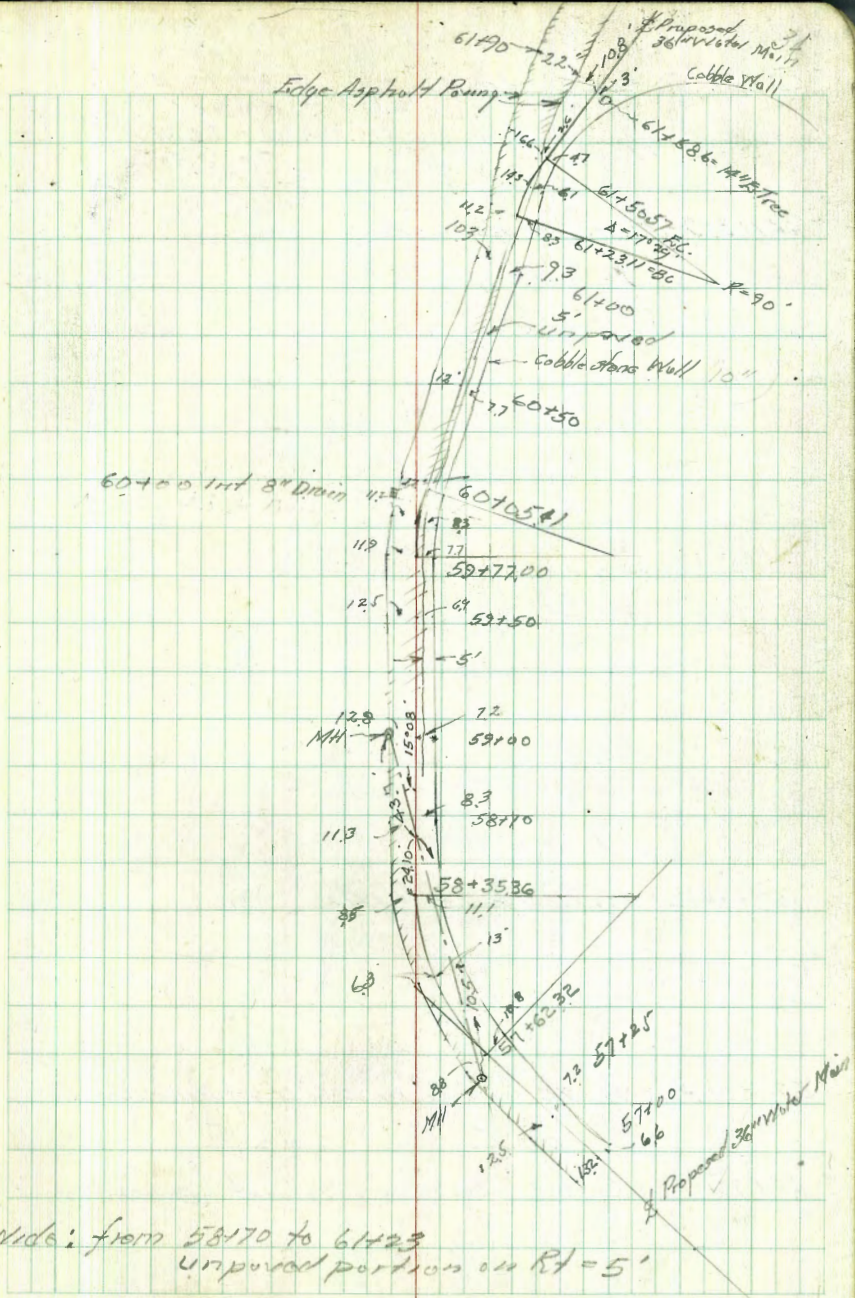 ℄ Proposed
36" Water Main
61+90
22
10.8
3'
Cobble Wall
Edge Asphalt Paving
61+58.6 = 14" Tree
16.6
4.7
14.3
6.1
61+50.57 E.C.
Δ=17°29'
11.2
8.3
61+23.11
R=90'
10.3
9.3
61+00
5'
unpaved
Cobblestone Wall
10"
12'
7.7
60+50
60+00 Int 8" Drain
11.2
12
60+05.41
8.3
11.9
7.7
59+77.00
12.5
6.9
59+50
5'
12.8
MH
15°08'
7.2
59+00
8.3
58+70
11.3
24.10
58+35.36
8.5
11.1
13'
6.8
10.5
10.8
57+62.32
8.8
MH
7.2
57+25
57+00
6.6
12.5
13.2
℄ Proposed 36" Water Main
Note: from 58+70 to 61+23
unpaved portion on Rt = 5'